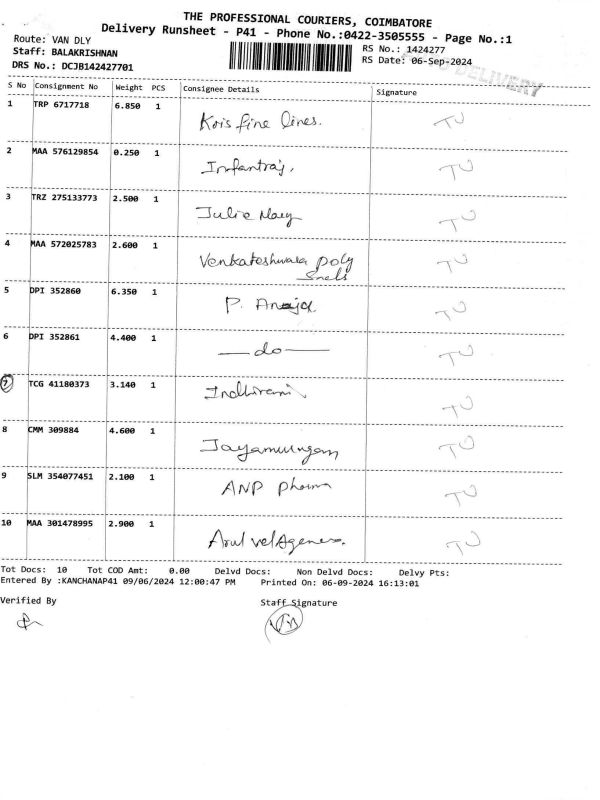 THE PROFESSIONAL COURIERS, COIMBATORE
Delivery Runsheet - P41 - Phone No.:0422-3505555 - Page No.:1
Route: VAN DLY
RS No.: 1424277
Staff: BALAKRISHNAN
RS Date: 06-Sep-2024
DRS No.: DCJB142427701
DELIVERY
S No Consignment No Weight PCS Consignee Details Signature
1 TRP 6717718 6.850 1 Kris fine lines. TU
2 MAA 576129854 0.250 1 Infantraj. TU
3 TRZ 275133773 2.500 1 Julie Mary TU
4 MAA 572025783 2.600 1 Venkateshwara poly TU
5 DPI 352860 6.350 1 P. TU
6 DPI 352861 4.400 1 — do — TU
7 TCG 41180373 3.140 1 Indhirani TU
8 CMM 309884 4.600 1 Jayamurugan TU
9 SLM 354077451 2.100 1 ANP pharma TU
10 MAA 301478995 2.900 1 Arul vel TU
Tot Docs: 10 Tot COD Amt: 0.00 Delvd Docs: Non Delvd Docs: Delvy Pts:
Entered By :KANCHANAP41 09/06/2024 12:00:47 PM Printed On: 06-09-2024 16:13:01
Verified By Staff Signature